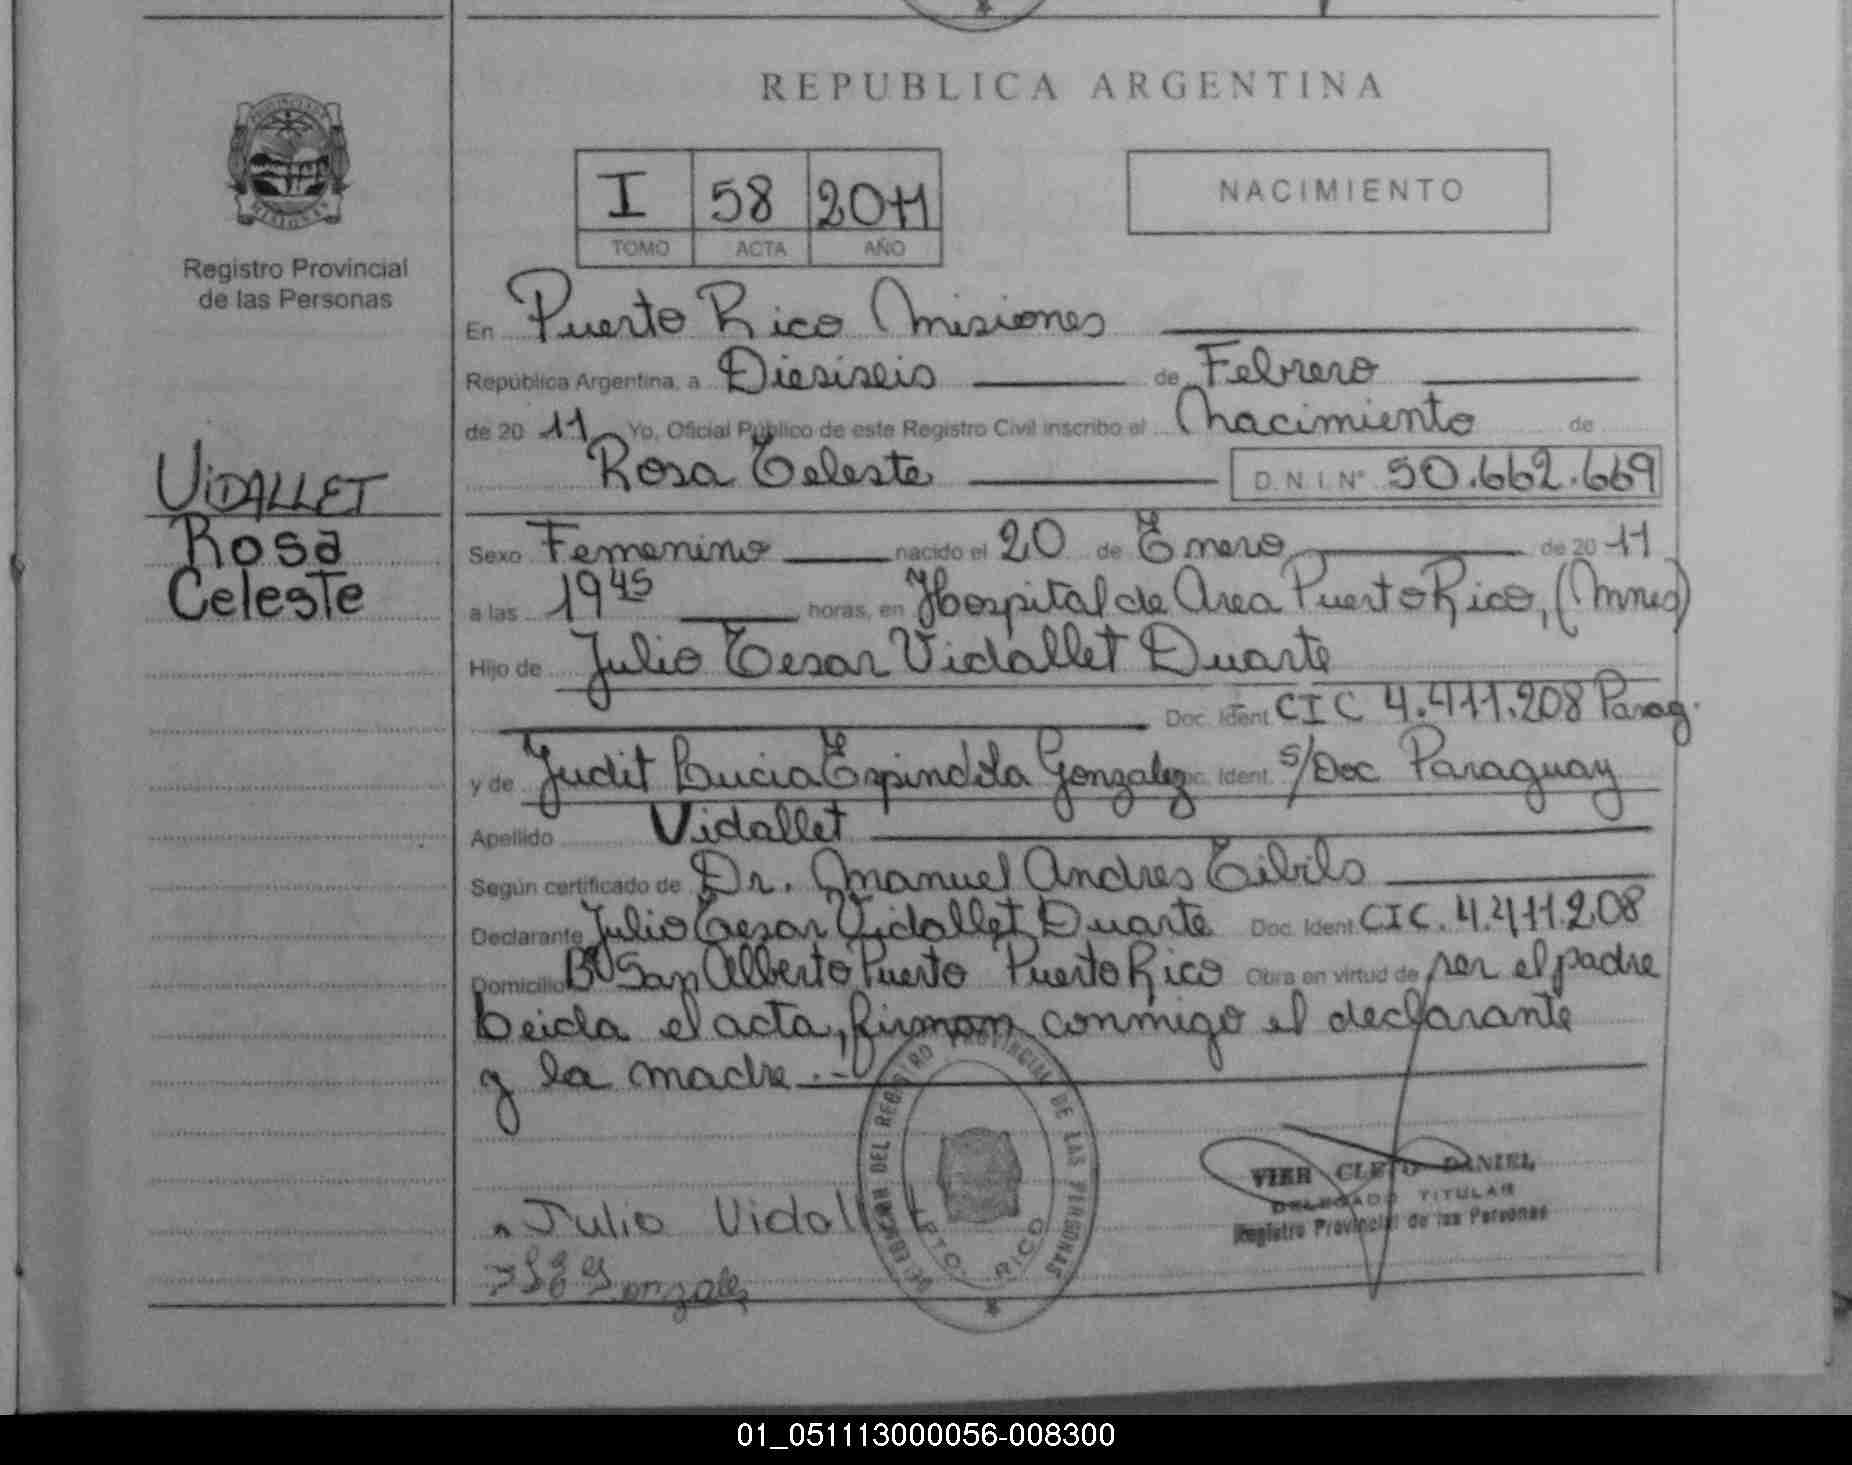 REPUBLICA ARGENTINA
PROVINCIA
MISIONES
Registro Provincial
de las Personas
I 58 2011
TOMO ACTA AÑO
NACIMIENTO
En Puerto Rico Misiones
República Argentina, a Diesiseis de Febrero
de 20 11 Yo, Oficial Público de este Registro Civil inscribo el Nacimiento de
Rosa Celeste D.N.I. Nº 50.662.669
VIDALLET
Rosa
Celeste
Sexo Femenino nacido el 20 de Enero de 20 11
a las 19 45 horas, en Hospital de Area Puerto Rico, (Mnes)
Hijo de Julio Cesar Vidallet Duarte
Doc. Ident CIC 4.411.208 Parag.
y de Judit Lucia Espindola Gonzalez Doc. Ident. s/Doc Paraguay
Apellido Vidallet
Según certificado de Dr. Manuel Andres Cibils
Declarante Julio Cesar Vidallet Duarte Doc. Ident. CIC. 4.411.208
Domicilio Bº San Alberto Puerto Puerto Rico Obra en virtud de ser el padre
Leida el acta, firman conmigo el declarante
y la madre.-
DEL REGISTRO PROVINCIAL DE LAS PERSONAS
PTO. RICO
VIER CLETO DANIEL
DELEGADO TITULAR
Registro Provincial de las Personas
Julio Vidallet
Gonzalez
01_051113000056-008300